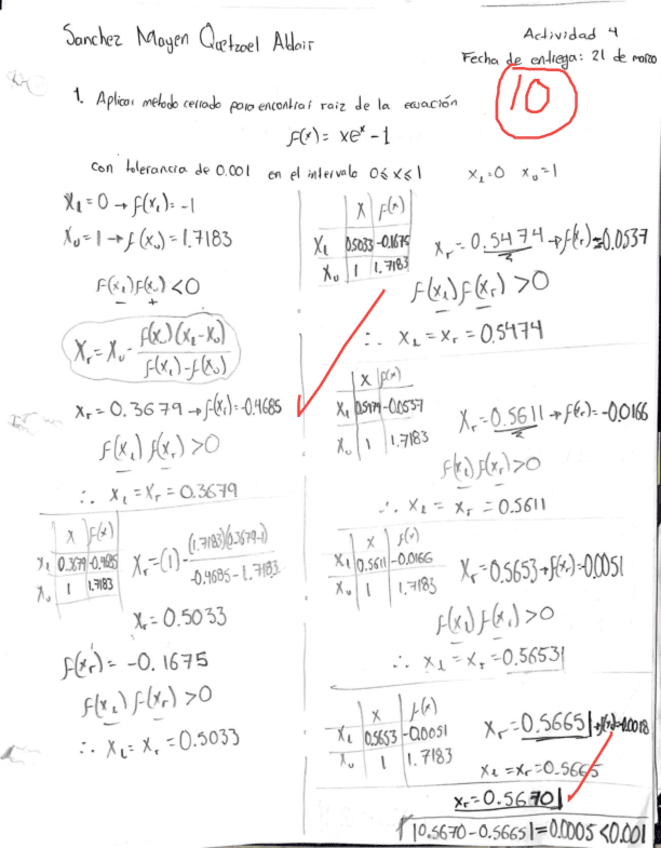 Sanchez Moyen Quetzael Aldair
Actividad 4
Fecha de entrega: 21 de marzo
10
1. Aplicar metodo cerrado para encontrar raiz de la ecuación
f(x) = xe^x - 1
con tolerancia de 0.001 en el intervalo 0 ≤ x ≤ 1 x_L=0 x_u=1
x_L = 0 → f(x_L) = -1
x_u = 1 → f(x_u) = 1.7183
f(x_L) f(x_u) < 0
- +
x_r = x_u - f(x_u)(x_L - x_u) / f(x_L) - f(x_u)
x_r = 0.3679 → f(x_r) = -0.4685
f(x_L) f(x_r) > 0
∴ x_L = x_r = 0.3679
x f(x)
x_L 0.3679 -0.4685
x_u 1 1.7183
x_r = (1) - (1.7183)(0.3679-1) / -0.4685 - 1.7183
x_r = 0.5033
f(x_r) = -0.1675
f(x_L) f(x_r) > 0
∴ x_L = x_r = 0.5033
x f(x)
x_L 0.5033 -0.1675
x_u 1 1.7183
x_r = 0.5474 → f(x_r) = -0.0537
f(x_L) f(x_r) > 0
∴ x_L = x_r = 0.5474
x f(x)
x_L 0.5474 -0.0537
x_u 1 1.7183
x_r = 0.5611 → f(x_r) = -0.0166
f(x_L) f(x_r) > 0
∴ x_L = x_r = 0.5611
x f(x)
x_L 0.5611 -0.0166
x_u 1 1.7183
x_r = 0.5653 → f(x_r) = -0.0051
f(x_L) f(x_r) > 0
∴ x_L = x_r = 0.5653
x f(x)
x_L 0.5653 -0.0051
x_u 1 1.7183
x_r = 0.5665 → f(x_r) = -0.0018
x_L = x_r = 0.5665
x_r = 0.5670
|0.5670 - 0.5665| = 0.0005 < 0.001